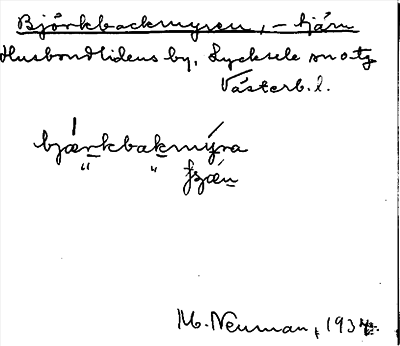 Björkbackmyren, -tjärn
Husbondlidens by, Lycksele sn o tg
Västerb. l.
bjærkbakmýra
" "
M. Neuman, 1934.